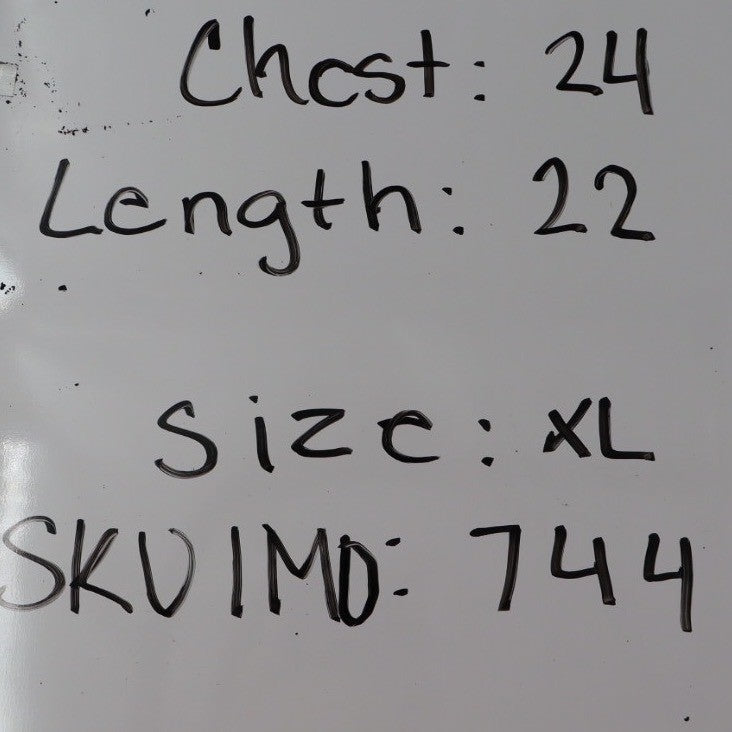 Chest: 24
Length: 22
Size: XL
SKU IMD: 744